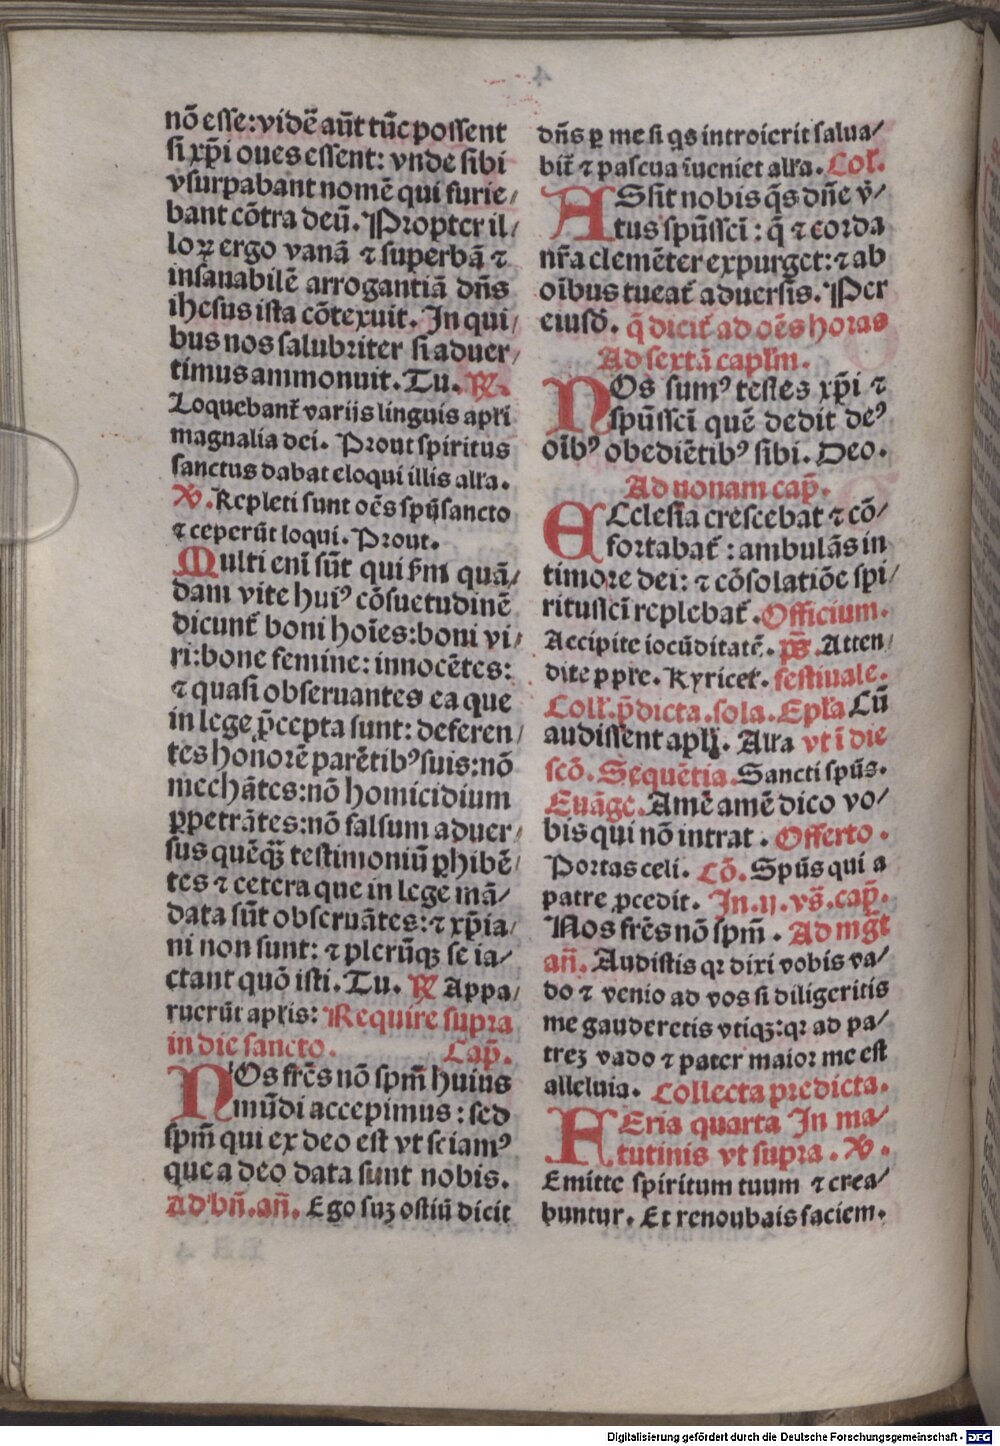 nō esse: vidē aūt tūc possent
si xp̄i oues essent: vnde sibi
vsurpabant nomē qui furie/
bant cōtra deū. Propter il/
loꝝ ergo vanā ⁊ superbā ⁊
insanabilē arrogantiā dn̄s
ihesus ista cōtexuit. In qui/
bus nos salubriter si aduer/
timus ammonuit. Tu. ℟.
Loquebant᷑ varijs linguis apl'i
magnalia dei. Prout spiritus
sanctus dabat eloqui illis all'a.
℣. Repleti sunt oēs spūsancto
⁊ ceperūt loqui. Prout.
Multi enī sūt qui s̄m quā/
dam vite huiꝰ cōsuetudinē
dicunt᷑ boni hoīes: boni vi/
ri: bone femine: innocētes:
⁊ quasi obseruantes ea que
in lege p̄cepta sunt: deferen/
tes honorē parētibꝰ suis: nō
mechātes: nō homicidium
ꝑpetrātes: nō falsum aduer/
sus quēqꝫ testimoniū ꝓhibē/
tes ⁊ cetera que in lege mā/
data sūt obseruātes: ⁊ xp̄ia/
ni non sunt: ⁊ plerūqꝫ se ia/
ctant quō isti. Tu. ℟ Appa/
ruerūt apl'is: Require supra
in die sancto. Cap̄.
NOs fr̄es nō spm̄ huius
mūdi accepimus: sed
spm̄ qui ex deo est vt sciamꝰ
que a deo data sunt nobis.
Ad bn̄. an̄. Ego suꝫ ostiū dicit
4
dn̄s ꝑ me si q̄s introierit salua/
bit᷑ ⁊ pascua īueniet all'a. Col'.
ASsit nobis q̄s dn̄e v̄/
tus spūssci̅: q̄ ⁊ corda
nr̄a clemēter expurget: ⁊ ab
oībus tueat᷑ aduersis. Per
eiusd̄. q̄ dicit᷑ ad oēs horas
Ad sextā capl'm.
NOs sumꝰ testes xp̄i ⁊
spūssci̅ quē dedit deꝰ
oībꝰ obediētibꝰ sibi. Deo.
Ad nonam cap̄.
ECclesia crescebat ⁊ cō/
fortabat᷑: ambulās in
timore dei: ⁊ cōsolatiōe spi/
ritussci̅ replebat᷑. Officium.
Accipite iocūditatē. ps̄. Atten/
dite ppl'e. Kyricel'. festiuale.
Coll'. p̄dicta. sola. Epl'a Cū
audissent apl'i. All'a vt ī die
scō. Sequētia. Sancti spūs.
Euāge. Amē amē dico vo/
bis qui nō intrat. Offerto.
Portas celi. Cō. Spūs qui a
patre ꝓcedit. In .ij. vs̄. cap̄.
Nos fr̄es nō spm̄. Ad mḡt
an̄. Audistis qꝛ dixi vobis va/
do ⁊ venio ad vos si diligeritis
me gauderetis vtiqꝫ: qꝛ ad pa/
treꝫ vado ⁊ pater maior me est
alleluia. Collecta predicta.
FEria quarta In ma/
tutinis vt supra. ℣.
Emitte spiritum tuum ⁊ crea/
buntur. Et renoubais faciem.
Digitalisierung gefördert durch die Deutsche Forschungsgemeinschaft - DFG